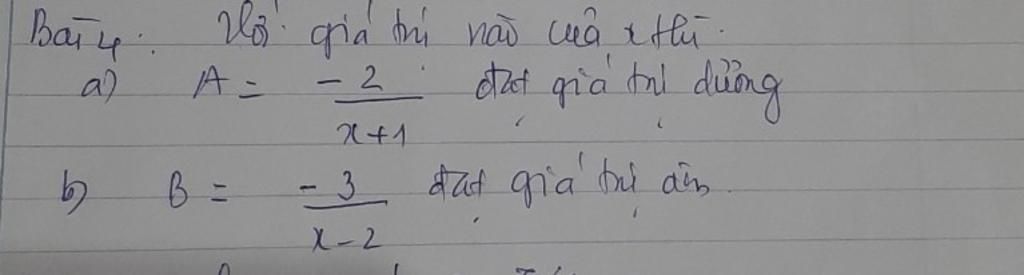 Bài 4: Với giá trị nào của x thì:
a) A = -2/(x+1) đạt giá trị dương
b) B = -3/(x-2) đạt giá trị âm.